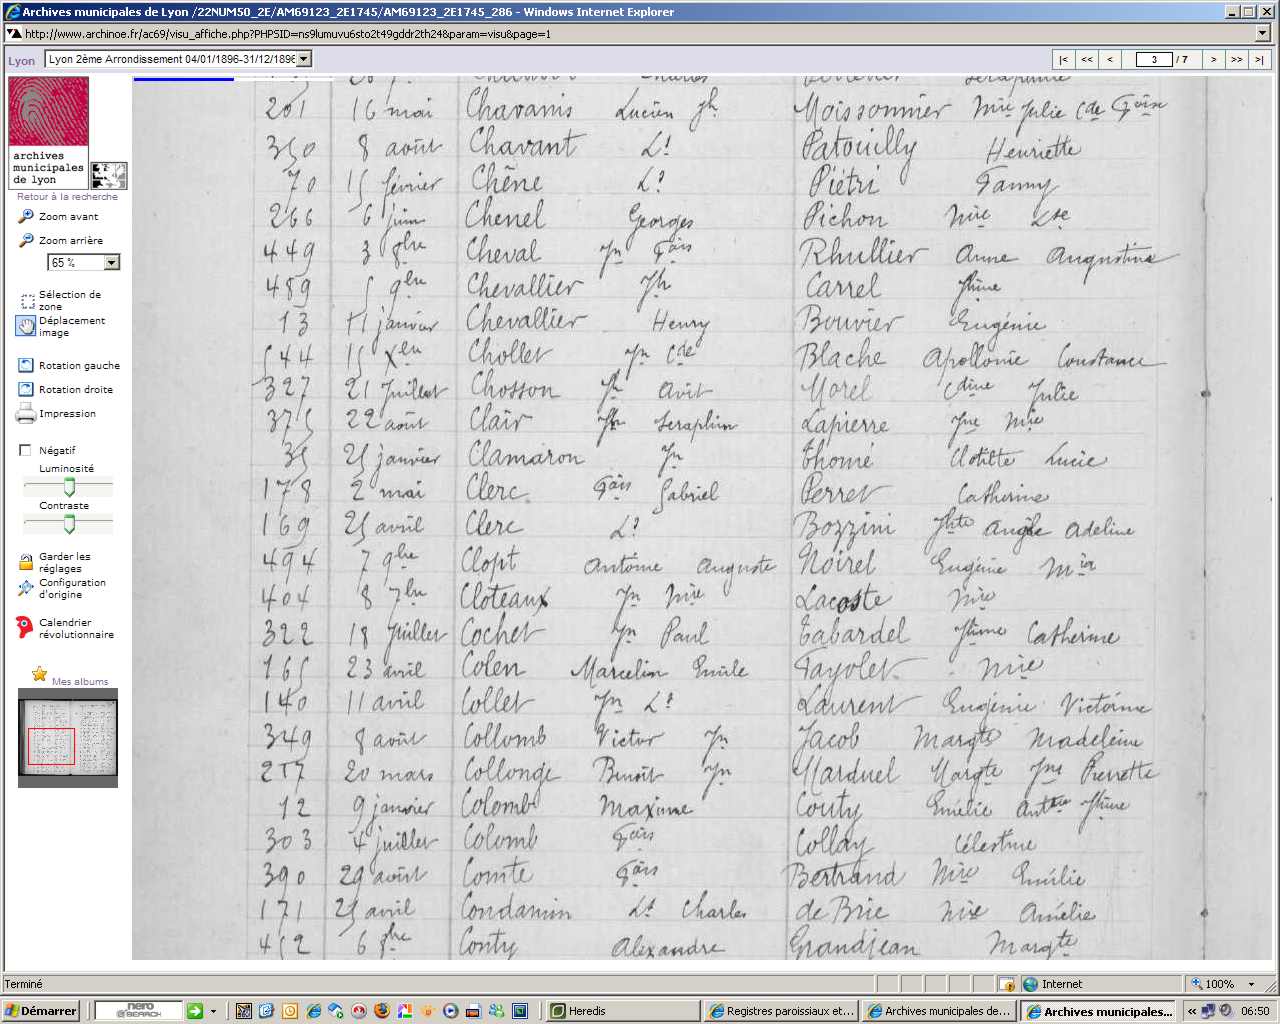 Archives municipales de Lyon /22NUM50_2E/AM69123_2E1745/AM69123_2E1745_286 - Windows Internet Explorer
http://www.archinoe.fr/ac69/visu_affiche.php?PHPSID=ns9lumuvu6sto2t49gddr2th24&param=visu&page=1
Lyon
Lyon 2ème Arrondissement 04/01/1896-31/12/1896
|< << < 3 / 7 > >> >|
archives
municipales
de Lyon
Retour à la recherche
Zoom avant
Zoom arrière
65 %
Sélection de
zone
Déplacement
image
Rotation gauche
Rotation droite
Impression
Négatif
Luminosité
Contraste
Garder les
réglages
Configuration
d'origine
Calendrier
révolutionnaire
Mes albums
201 16 mai Chavanis Lucien Jh Moissonnier Mie Julie Cde
350 8 août Chavant Ls Patouilly Henriette
70 15 février Chêne Ls Piétri Fanny
266 6 juin Chenel Georges Pichon Mie Lse
449 3 8bre Cheval Jn Fçois Rhullier Anne Augustine
489 5 9bre Chevallier Jh Carrel Jhine
13 11 janvier Chevallier Henry Bouvier Eugénie
544 15 Xbre Chollet Jn Cde Blache Apollonie Constance
327 21 Juillet Chosson Jh Avit Morel Cdine Julie
375 22 août Clair Jh Seraphin Lapierre Jne Mie
35 25 janvier Clamaron Jn Thomé Clotilde Lucie
178 2 mai Clerc Fçois Gabriel Perret Catherine
169 25 avril Clerc Ls Bozzini Jhte Angèle Adeline
494 7 9bre Clopt Antoine Auguste Noirel Eugénie Mie
404 8 7bre Cloteaux Jn Mie Lacoste Mie
322 18 Juillet Cochet Jn Paul Tabardel Jhine Catherine
165 23 avril Colen Marcelin Emile Fayolet Mie
140 11 avril Collet Jn Ls Laurent Eugénie Victorine
349 8 août Collomb Victor Jn Jacob Margte Madeleine
217 20 mars Collonge Benoît Jn Marduel Margte Jne Pierrette
12 9 janvier Colomb Maxime Couty Emélie Antne Jhine
303 4 juillet Colomb Fçois Collay Célestine
390 29 août Comte Fçois Bertrand Mie Emélie
171 25 avril Condamin Ls Charles de Brie Mie Amélie
452 6 8bre Conty Alexandre Grandjean Margte
Terminé
Internet
100%
Démarrer
nero
SEARCH
Heredis
Registres paroissiaux et...
Archives municipales de...
Archives municipales...
06:50